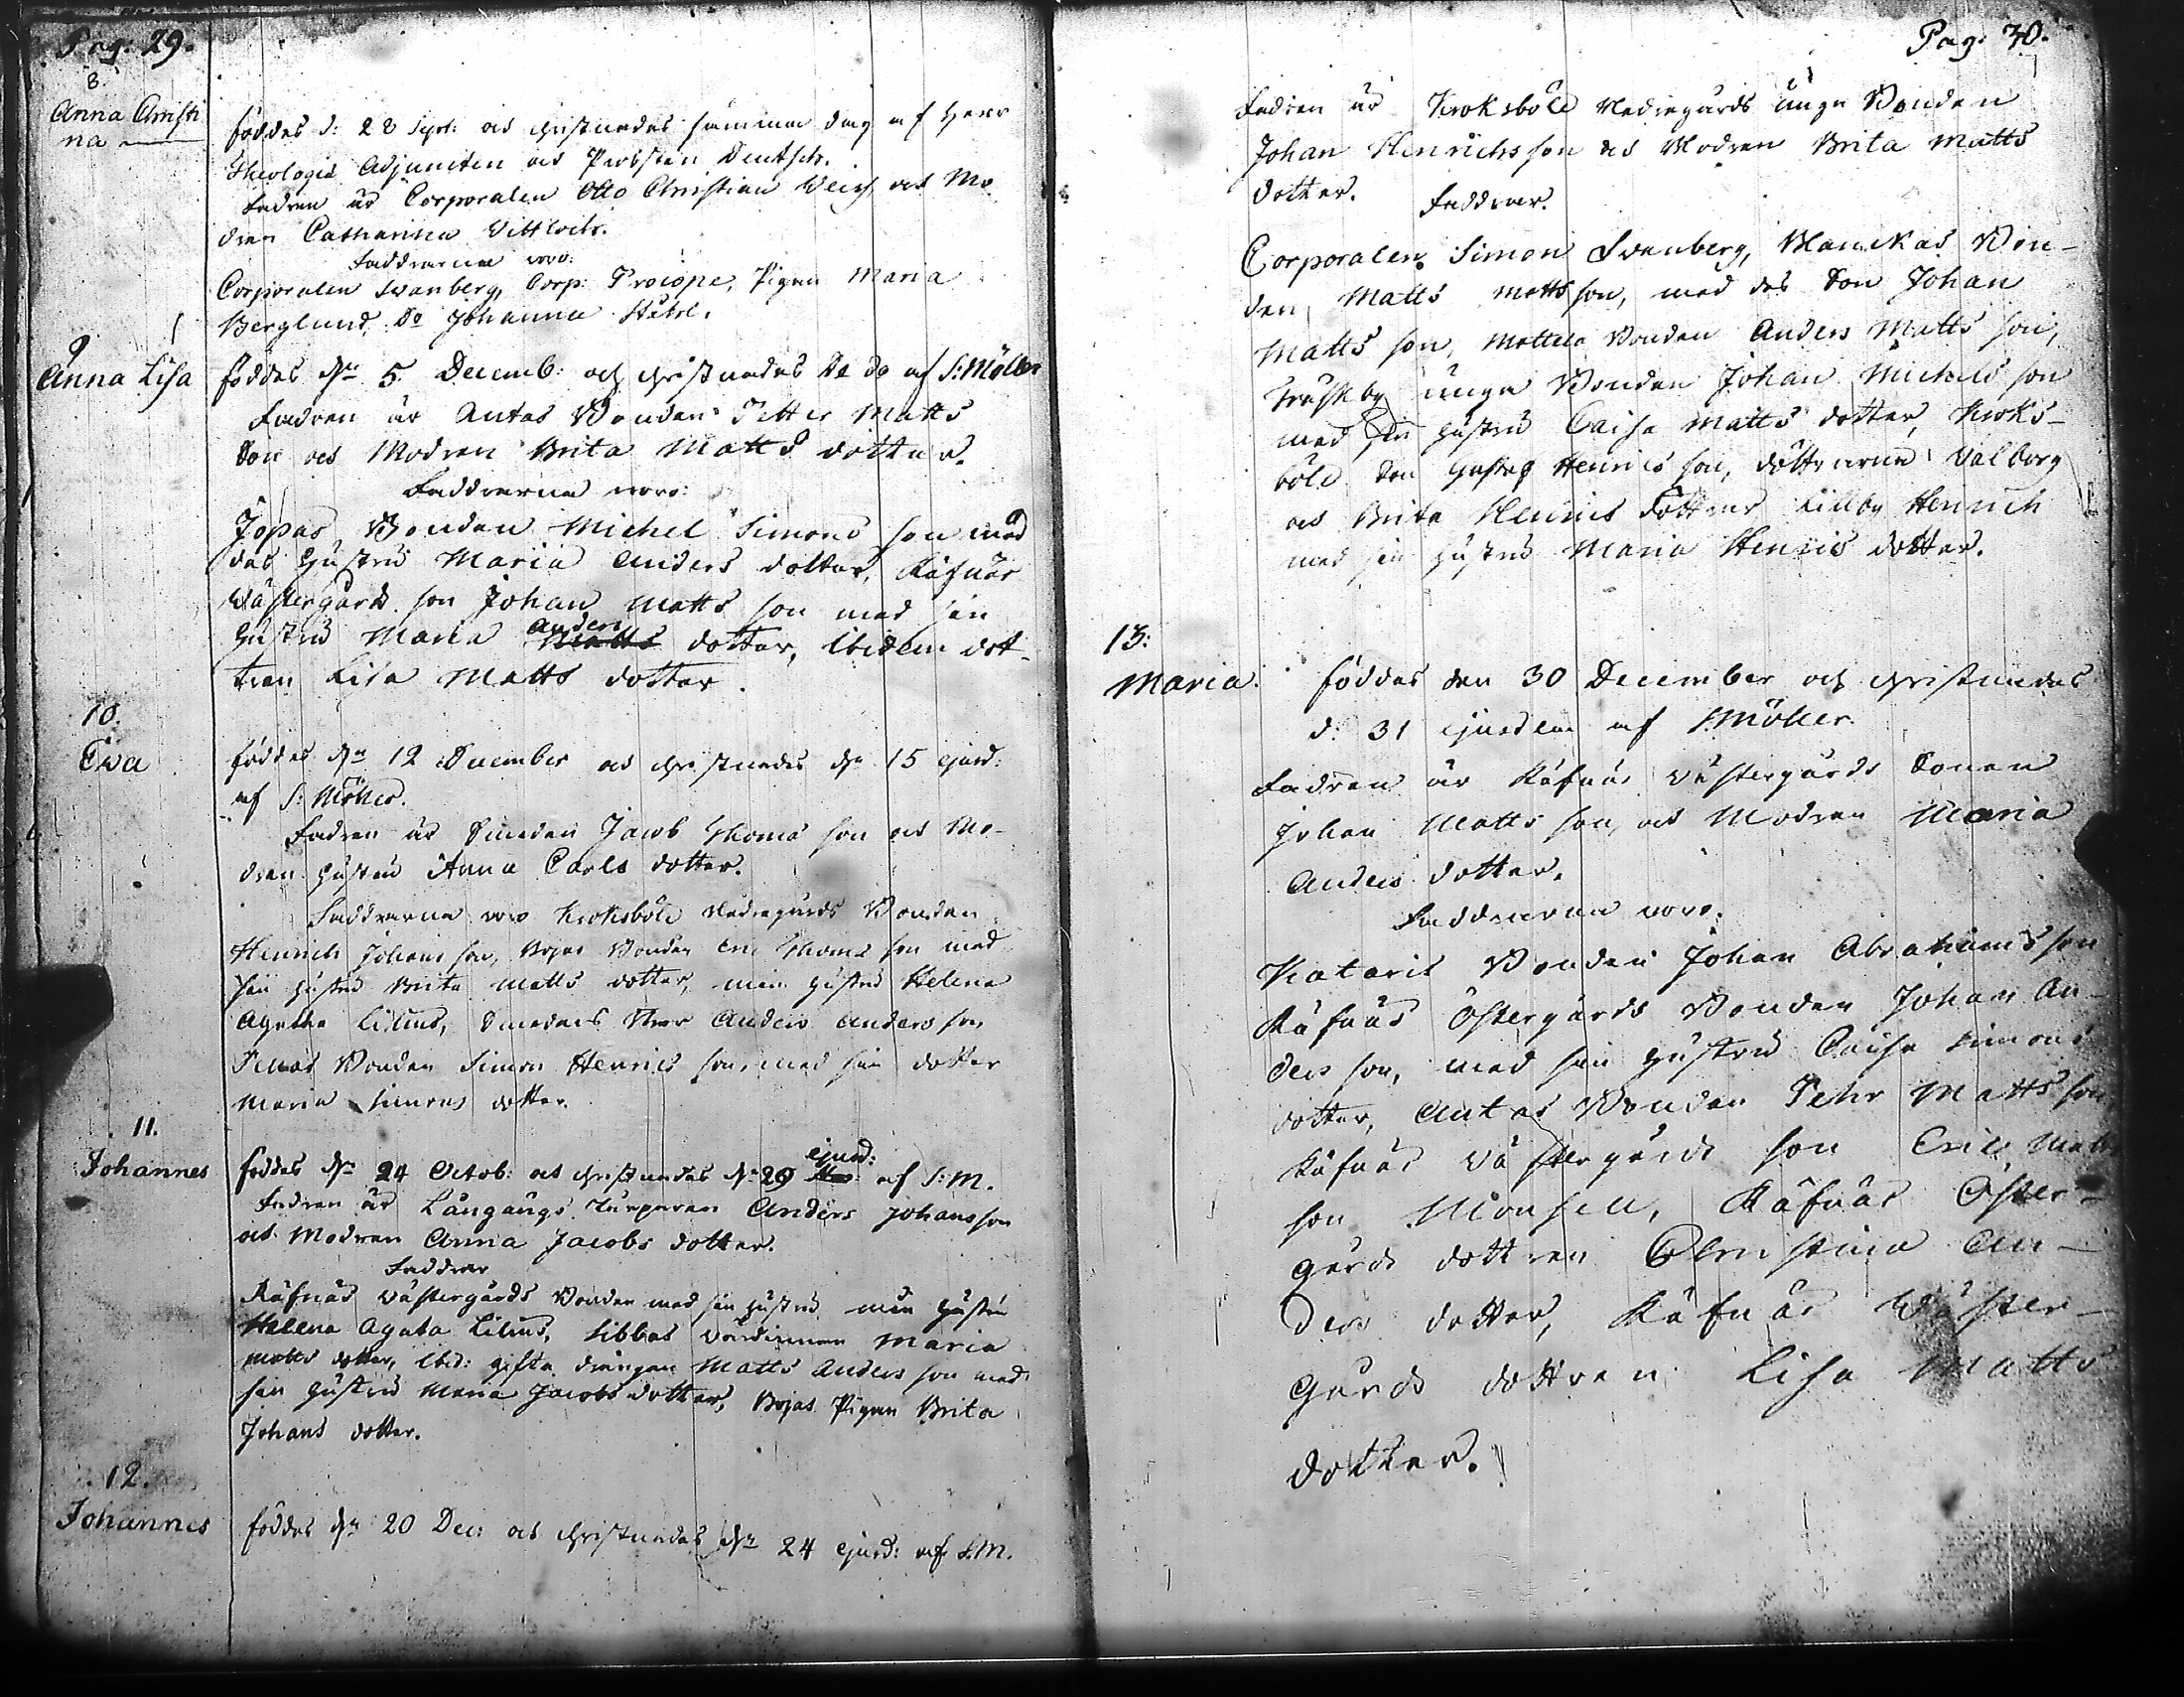 Pag: 29.
8.
Anna Christi
na
föddes d: 28 Sept: och christnades samma dag af Herr
Theologiæ Adjuncten och Probsten Deutsch.
Fadren är Corporalen Otto Christian och Mo
dren Catharina
Faddrarna voro:
Corporalen Svanberg, Corp: Procopé, Pigan Maria
Berglund, Do Johanna
9
Anna Lisa
föddes dn 5 Decemb: och christnades De do af S: Möller
Fadren är Antas Bonden Petter Matts
Son och Modren Brita Matts dotter.
Faddrarna voro:
Jopas Bonden Michel Simons son med
des hustru Maria Anders dotter, Räfnäs
Västergårds son Johan Matts son med sin
hustru Maria Anders dotter, Ibidem dot-
tren Lisa Matts dotter.
10.
Ewa
föddes dn 12 December och christnades dn 15 ejusd:
af S: Möller.
Fadren är Smeden Jacob Thomæ son och Mo-
dren hustru Anna Carls dotter.
Faddrarna voro Kroksböle Nedregårds Bonden
Henrich Johans son, Bojas Bonden Eric Thomæ son med
sin hustru Brita Matts dotter, min hustru Helena
Agatha Lilius, Smedens Anders Anders son
Bonden Simon Henrics son, med sin dotter
Maria Simons dotter.
11.
Johannes
föddes dn 24 Octob: och christnades dn 29 ejusd: af S: M.
Fadren är Långängs Torparen Anders Johans son
och Modren Anna Jacobs dotter.
Faddrar
Räfnäs Västergårds Bonden med sin hustru, min hustru
Helena Agata Lilius, Sibbas Värdinnan Maria
Matts dotter, Ibid: gifta drängen Matts Anders son med
sin hustru Maria Jacobs dotter, Bojas Pigan Brita
Johans dotter.
12.
Johannes
föddes dn 20 Dec: och christnades dn 24 ejusd: af S. M.
Pag: 30.
Fadren är Kroksböle Nedregårds unga Bonden
Johan Henrichs son och Modren Brita Matts
dotter. Faddrar.
Corporalen Simon Svenberg, Bon-
den Matts Matts son, med des Son Johan
Matts son, Bonden Anders Matts son,
unga Bonden Johan Michels son
med sin hustru Caisa Matts dotter, Kroks-
böle Son Gustaf Henrics son, döttrarna Valborg
och Brita Henrics döttrar Lillby Henrich
med sin hustru Maria Henrics dotter.
13:
Maria.
föddes den 30 December och christnades
d: 31 ejusdem af S: Möller.
Fadren är Räfnäs Västergårds Sonen
Johan Matts son, och Modren Maria
Anders dotter.
Faddrarna voro:
Bonden Johan Abrahams son
Räfnäs Östergårds Bonden Johan An-
ders son, med sin hustru Caisa Simons
dotter, Antas Bonden Pehr Matts son
Räfnäs Västergårds son Eric Matts
son Räfnäs Öster-
gårds dottren Christina An-
ders dotter, Räfnäs Wäster-
gårds dottren Lisa Matts
dotter.